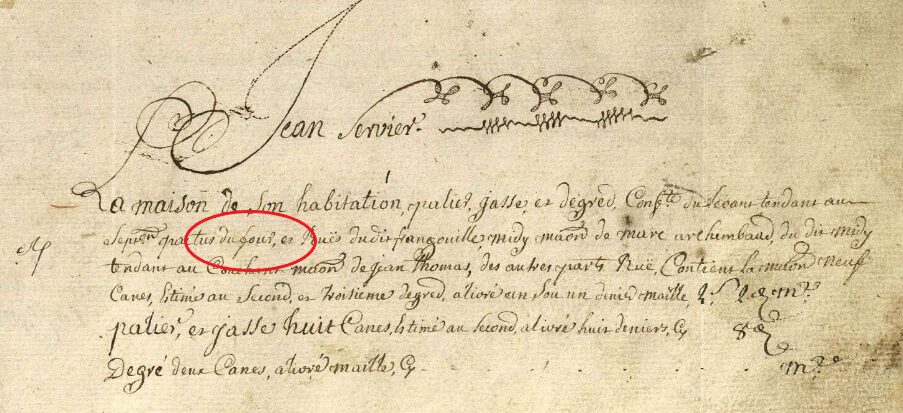 Jean Servier
La maison de son habitation, palier, jasse, et dègred, Conf.te du Levant tendant au
Septn. patus du four, et Ruës dudit franqouille midy maon. de marc archimbaud, du dit midy
tendant au Couchant maon. de Jean Thomas, des autres parts Ruë, Contient la maison neuf
Canes, Estimé au Second, et troisieme degred, alivré un sou un denier maille, 1 s 1 d m.e
palier, et jasse huit Canes, Estimé au second, alivré huit deniers, Cy 8 d
Degré deux Canes, alivré maille, Cy m.e